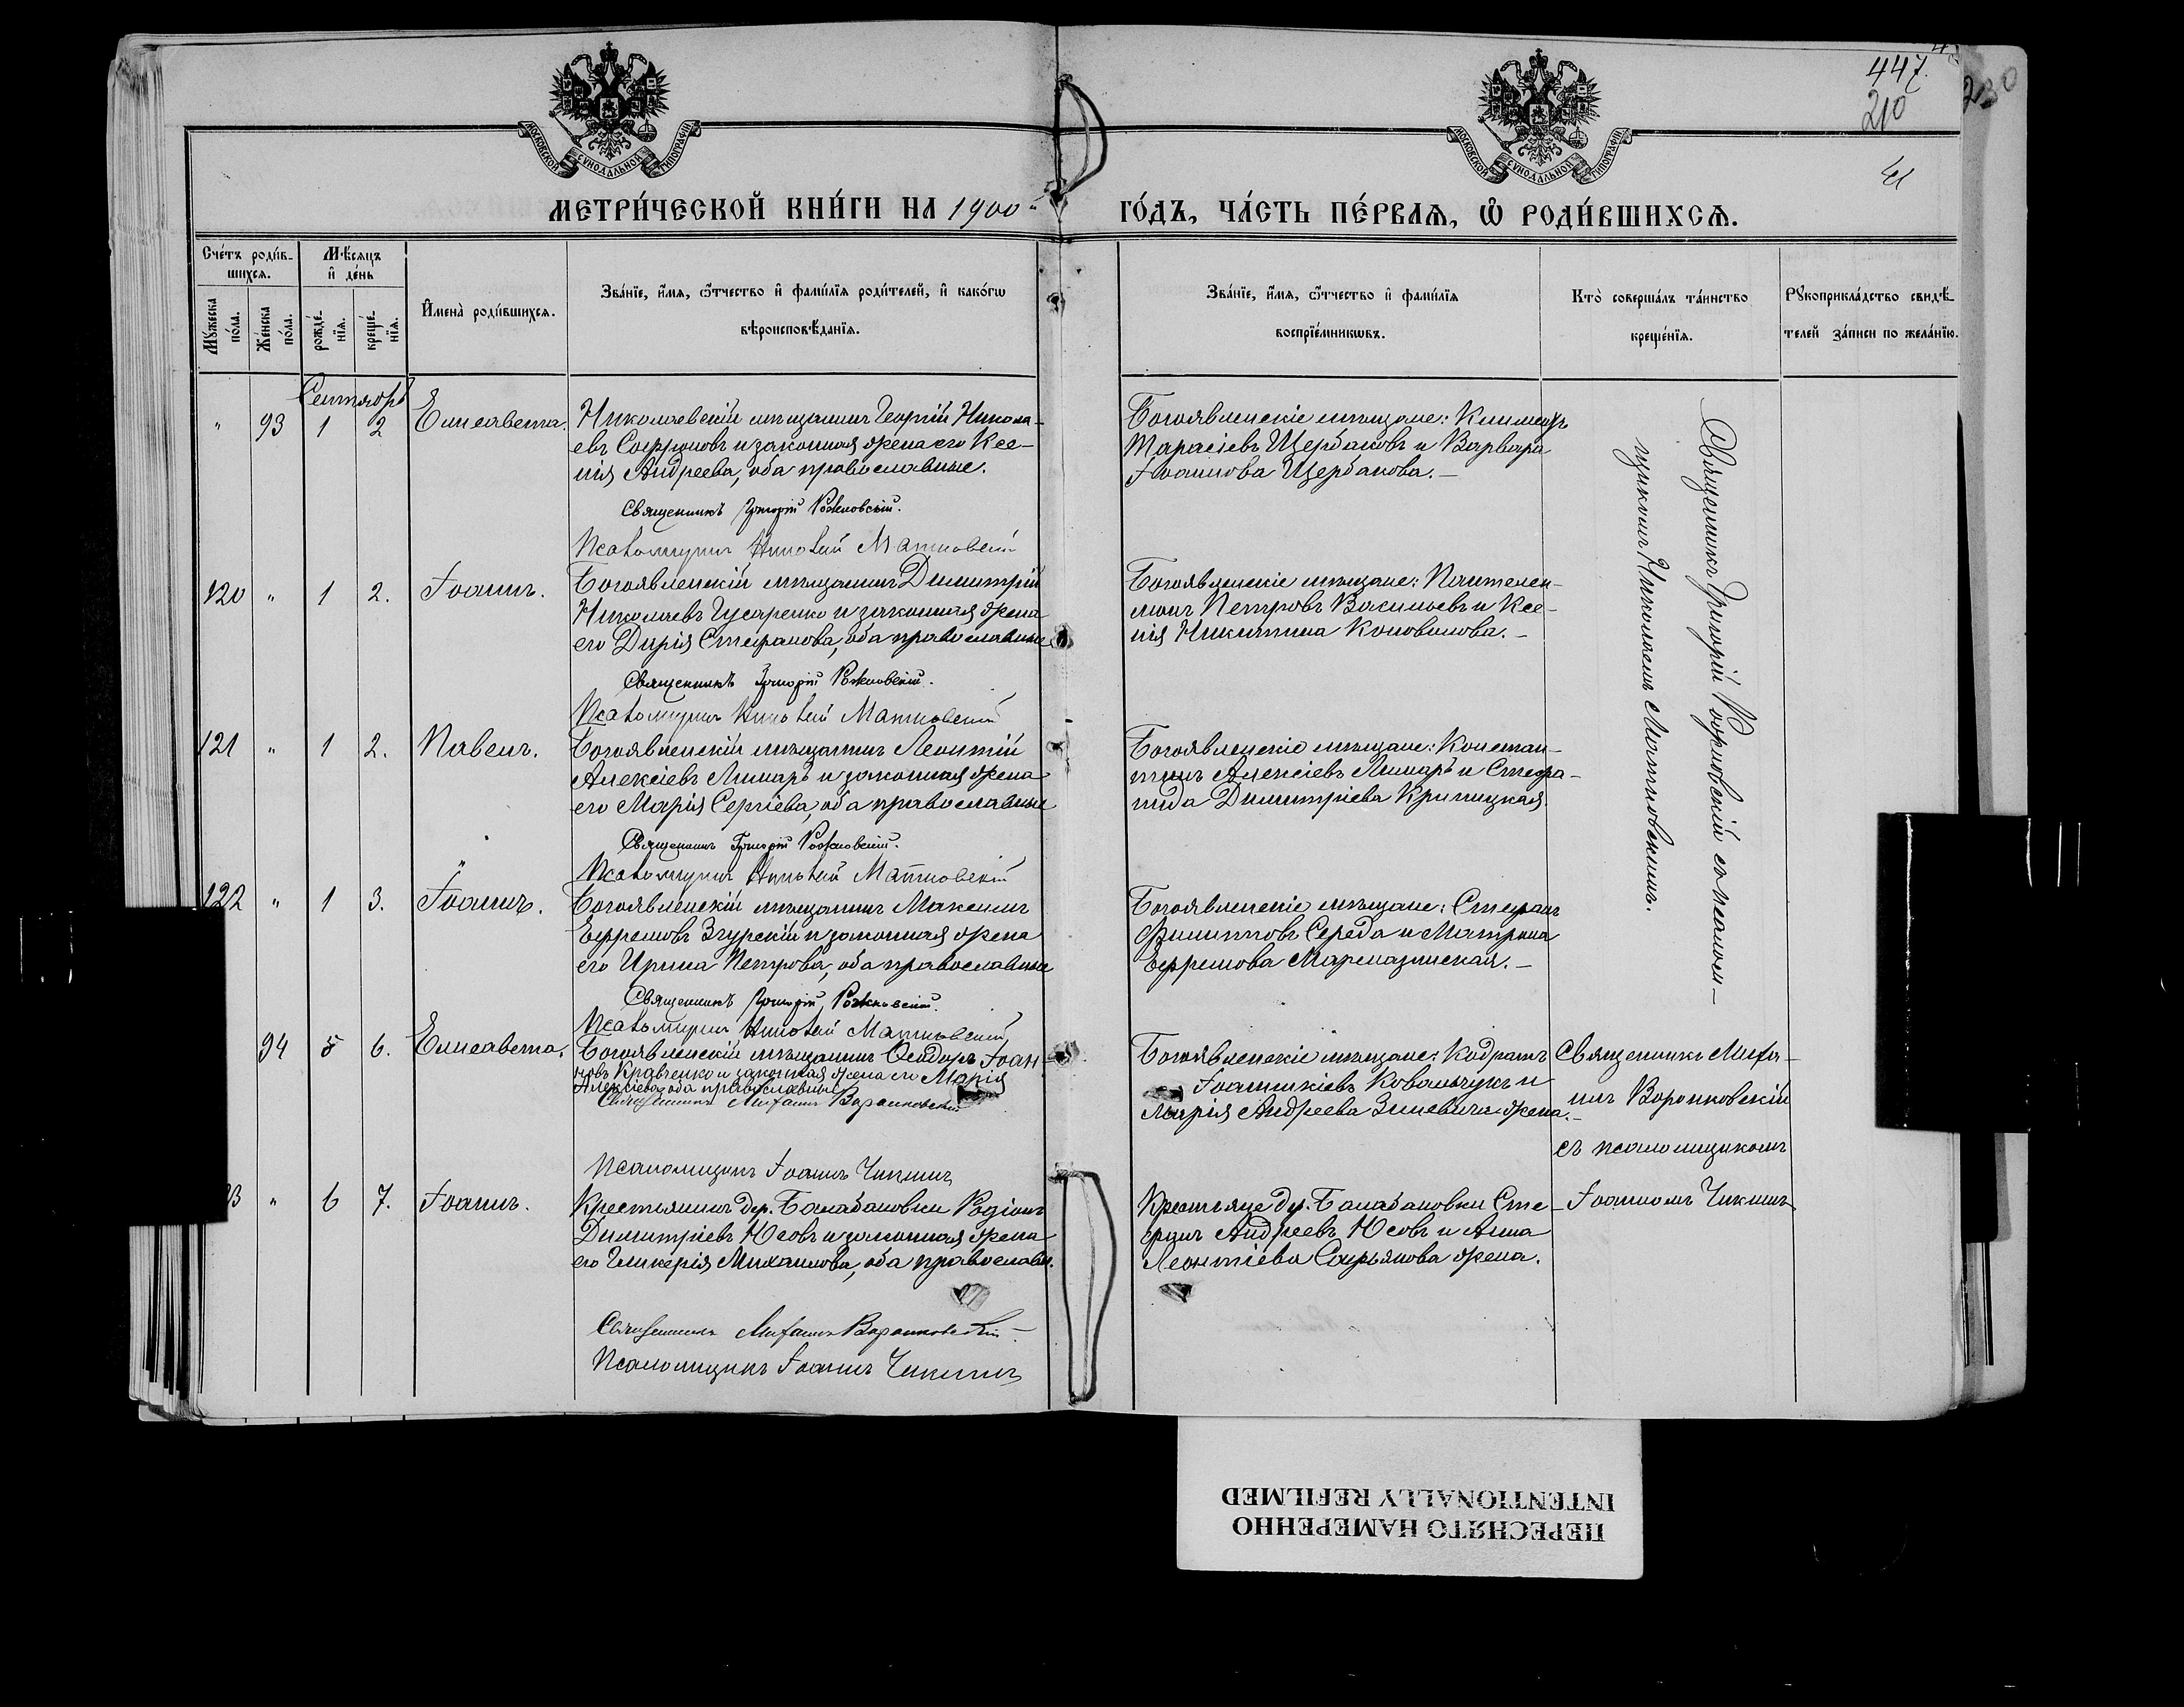 447.
210
230
МОСКОВСКОЙ СѴНОДАЛЬНОЙ ТИПОГРАФІИ
МОСКОВСКОЙ СѴНОДАЛЬНОЙ ТИПОГРАФІИ
МЕТРИ́ЧЕСКОЙ КНИ́ГИ НА 1900
ГО́ДЪ, ЧА́СТЬ ПЕ́РВАѦ, Ѽ РОДИ́ВШИХСѦ.
Сче́тъ роди́в-
шихсѧ.
Мѣ́сѧцъ
и҆ де́нь
Мꙋ́жеска
по́ла.
Же́нска
по́ла.
рожде́-
нїѧ.
креще́-
нїѧ.
И҆мена̀ роди́вшихсѧ.
Зва́нїе, и҆́мѧ, ѻ҆́тчество и҆ фамі́лїѧ роди́телей, и҆ како́гѡ
вѣроисповѣ́данїѧ.
Зва́нїе, и҆́мѧ, ѻ҆́тчество и҆ фамі́лїѧ
воспрїе́мникѡвъ.
Кто̀ соверша́лъ та́инство
креще́нїѧ.
Рꙋкоприкла́дство свидѣ́-
телей за́писи по жела́нїю.
Сентябрь
" 93 1 2 Елисавета.
Николаевскій мѣщанинъ Георгій Никола-
евъ Софроновъ и законная жена его Ксе-
нія Андреева, оба православные.
Священникъ Григорій
Псаломщикъ Николай Матковскій
Богоявленскіе мѣщане: Климентъ
Тарасіевъ Щербаковъ и Варвара
Іоаннова Щербакова. -
Священникъ Григорій съ псалом-
щикомъ Николаемъ Матковскимъ.
120 " 1 2. Іоаннъ.
Богоявленскій мѣщанинъ Димитрій
Николаевъ Гусаренко и законная жена
его Дарія Стефанова, оба православные
Священникъ Григорій
Псаломщикъ Николай Матковскій
Богоявленскіе мѣщане: Пантелеи-
монъ Петровъ Васильевъ и Ксе-
нія Никитина Коновалова. -
121 " 1 2. Павелъ.
Богоявленскій мѣщанинъ Леонтій
Алексіевъ Лимарь и законная жена
его Марія Сергіева, оба православные
Священникъ Григорій
Псаломщикъ Николай Матковскій
Богоявленскіе мѣщане: Констан-
тинъ Алексіевъ Лимарь и Стефа-
нида Димитріева Криницкая.
122 " 1 3. Іоаннъ.
Богоявленскій мѣщанинъ Максимъ
Ефремовъ Згурскій и законная жена
его Ирина Петрова, оба православные
Священникъ Григорій
Псаломщикъ Николай Матковскій
Богоявленскіе мѣщане: Стефанъ
Филипповъ Середа и Матрона
Ефремова
94 5 6. Елисавета.
Богоявленскій мѣщанинъ Ѳеодоръ Іоан-
новъ Кравченко и законная жена его Марія
Алексіева оба православные
Священникъ Митрофанъ Воронковскій
Псаломщикъ Іоаннъ Чикинъ
Богоявленскіе мѣщане: Кодратъ
Іоанникіевъ Ковальчукъ и
Марія Андреева Зиневича жена. -
Священникъ
Воронковскій
съ псаломщикомъ
Іоанномъ Чикинъ
" 6 7. Іоаннъ.
Крестьянинъ дер. Балабановки Родіонъ
Димитріевъ Юсовъ и законная жена
его Гликерія Михаилова, оба православн.
Священникъ Воронковскій
Псаломщикъ Іоаннъ Чикинъ
Крестьяне дер. Балабановки Сте-
фанъ Андреевъ Юсовъ и Анна
Леонтіева жена.
ПЕРЕСНЯТО НАМЕРЕННО
INTENTIONALLY REFILMED